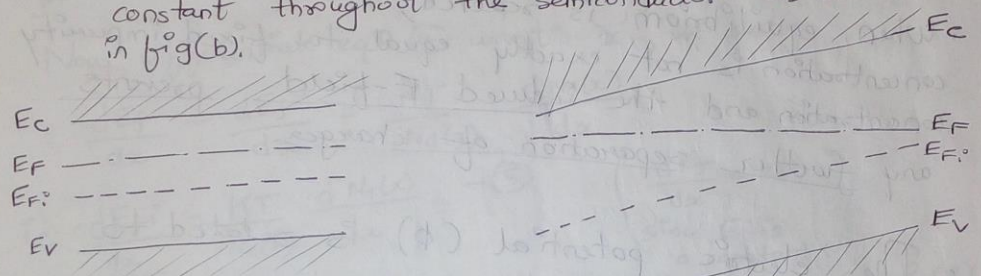 constant throughout the semiconductor
in fig(b).
Ec
Ec
EF
EF
EFi
EFi
Ev
Ev